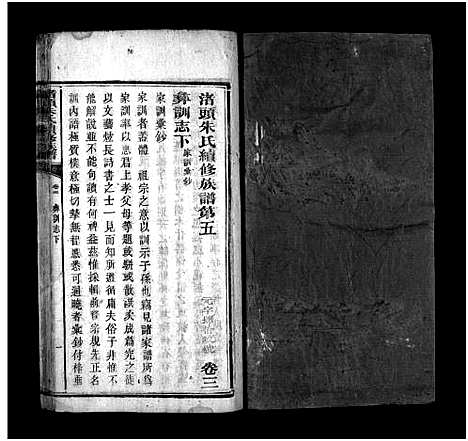 渚頭朱氏續修族譜第五
卷三
彝訓志下 家訓彙鈔
家訓彙鈔
家訓者蓋體 祖宗之意以訓示子孫也竊見諸家譜所爲
家訓率以忠君上孝父母等題或駢或散謨矣成篇究之徒
以炫文藝長詩書之士一見而知所遵循庸夫俗子非惟不
能解說並不能句讀有何裨益茲惟採輯前賢宗規先正名
訓內語極質樸意極切摯無智愚悉可通曉者彙鈔付梓垂
彝訓志下